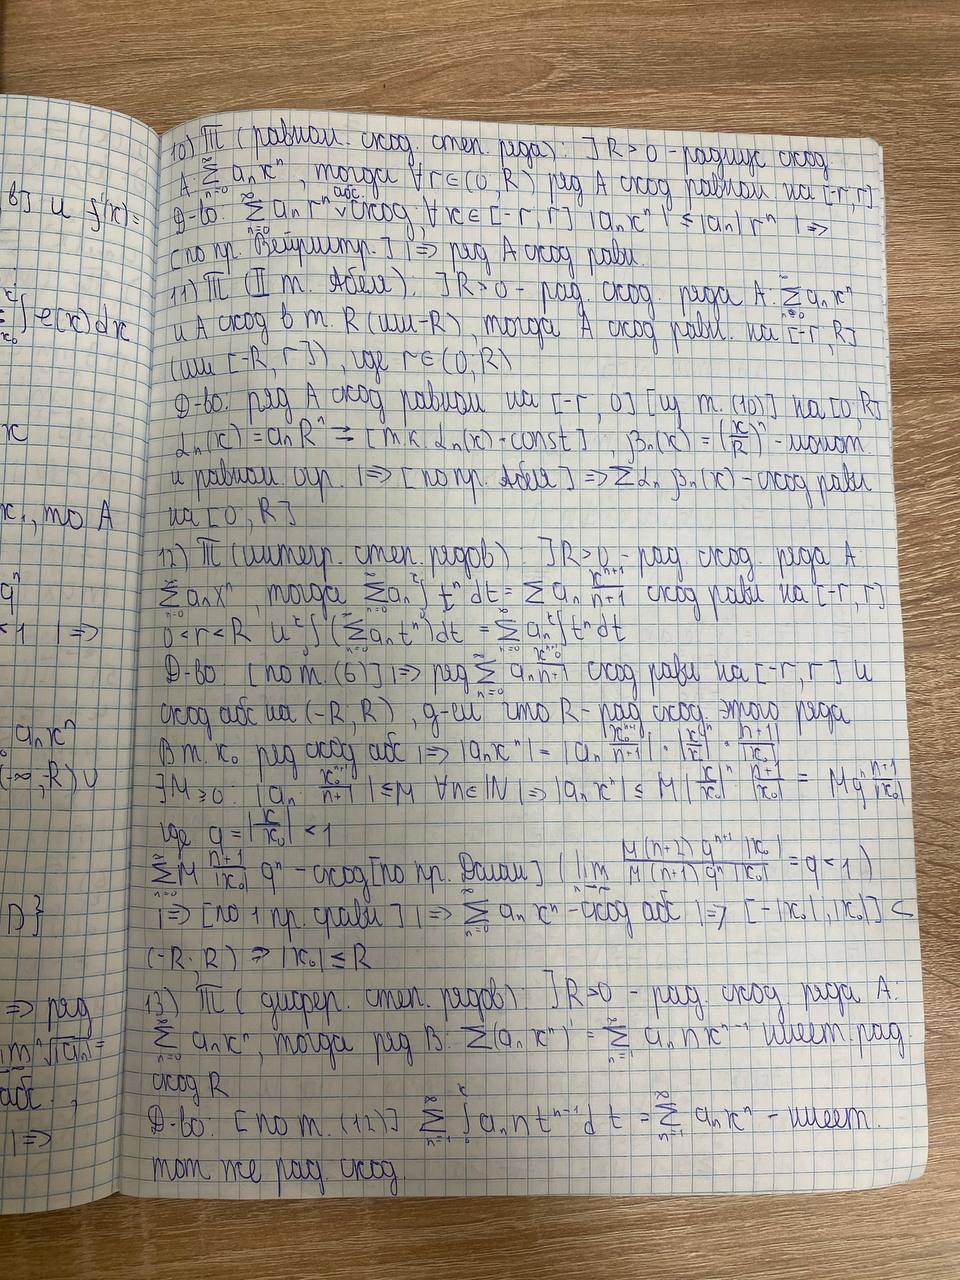 10) Π (равном. сход. степ. ряда): ] R > 0 - радиус сход.
A ∑_{n=0}^∞ aₙxⁿ, тогда ∀r∈(0,R) ряд A сход равном на [-r, r]
Д-во: ∑_{n=0}^∞ aₙrⁿ абс. сход; ∀x∈[-r, r] |aₙxⁿ| ≤ |aₙ|rⁿ |=>
[по пр. Вейрштр.] |=> ряд A сход равн.
11) Π (II т. Абеля). ] R > 0 - рад. сход. ряда A: ∑_{n=0}^∞ aₙxⁿ
и A сход в т. R (или -R), тогда A сход равн. на [-r, R]
(или [-R, r]), где r∈(0, R)
Д-во: ряд A сход равном на [-r, 0] [из т. (10)] на [0, R]
αₙ(x) = aₙRⁿ ⇉ [т к αₙ(x) - const], βₙ(x) = (x/R)ⁿ - монот.
и равном. огр. |=> [по пр. Абеля] => ∑αₙ βₙ(x) - сход равн
на [0, R]
12) Π (интегр. степ. рядов): ] R > 0 - рад. сход. ряда A
∑_{n=0}^∞ aₙxⁿ, тогда ∑_{n=0}^∞ aₙ ∫₀ˣ tⁿ dt = ∑ aₙ xⁿ⁺¹/(n+1) сход равн на [-r, r]
0 < r < R и ∫₀ˣ (∑_{n=0}^∞ aₙtⁿ) dt = ∑_{n=0}^∞ aₙ ∫₀ˣ tⁿ dt
Д-во: [по т. (6)] |=> ряд ∑_{n=0}^∞ aₙ xⁿ⁺¹/(n+1) сход равн на [-r, r] и
сход абс на (-R, R), д-ем что R - рад сход. этого ряда
В т. x₀ ряд сход абс |=> |aₙxⁿ| = |aₙ x₀ⁿ⁺¹/(n+1)| · |x/x₀|ⁿ · |(n+1)/x₀|
∃M ≥ 0: |aₙ x₀ⁿ⁺¹/(n+1)| ≤ M ∀n∈ℕ |=> |aₙxⁿ| ≤ M |x/x₀|ⁿ · |(n+1)/x₀| = Mqⁿ (n+1)/|x₀|
где q = |x/x₀| < 1
∑_{n=0}^∞ M (n+1)/|x₀| qⁿ - сход [по пр. Далам] (lim_{n→∞} M(n+2) qⁿ⁺¹ |x₀| / M(n+1) qⁿ |x₀| = q < 1)
|=> [по 1 пр. сравн] |=> ∑_{n=0}^∞ aₙxⁿ - сход абс |=> [-|x₀|, |x₀|] ⊂
(-R; R) => |x₀| ≤ R
13) Π (дифер. степ. рядов): ] R > 0 - рад. сход. ряда A:
∑_{n=0}^∞ aₙxⁿ, тогда ряд B: ∑(aₙxⁿ)' = ∑_{n=1}^∞ aₙnxⁿ⁻¹ имеет рад.
сход R
Д-во: [по т. (12)] ∑_{n=1}^∞ ∫₀ˣ aₙntⁿ⁻¹ dt = ∑_{n=1}^∞ aₙxⁿ - имеет
тот же рад. сход.
в] и f'(x) =
∫ e(x) dx
x
x₁, то A
qⁿ
< 1 |=>
aₙxⁿ
(-∞, -R) ∪
D}
=> ряд
lim ⁿ√|aₙ| =
абс.,
|=>